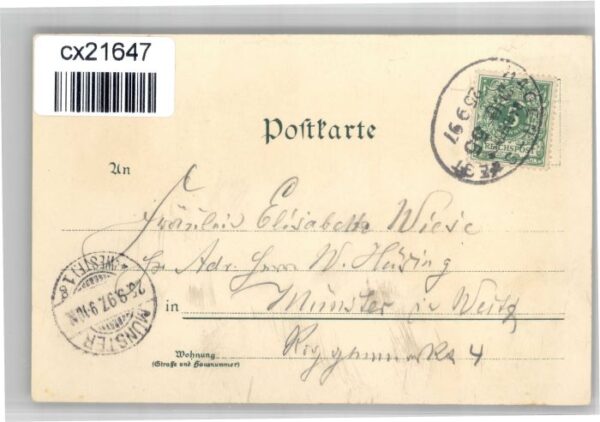 cx21647
Postkarte
An
Fräulein Elisabeth Wiese
pr. Adr. Herrn W. Hüsing
in Münster i/ Westf
Wohnung
(Straße und Hausnummer)
4
5
REICHSPOST
25 9 97
MÜNSTER (WESTF.) 1
26.9.97. 9-10